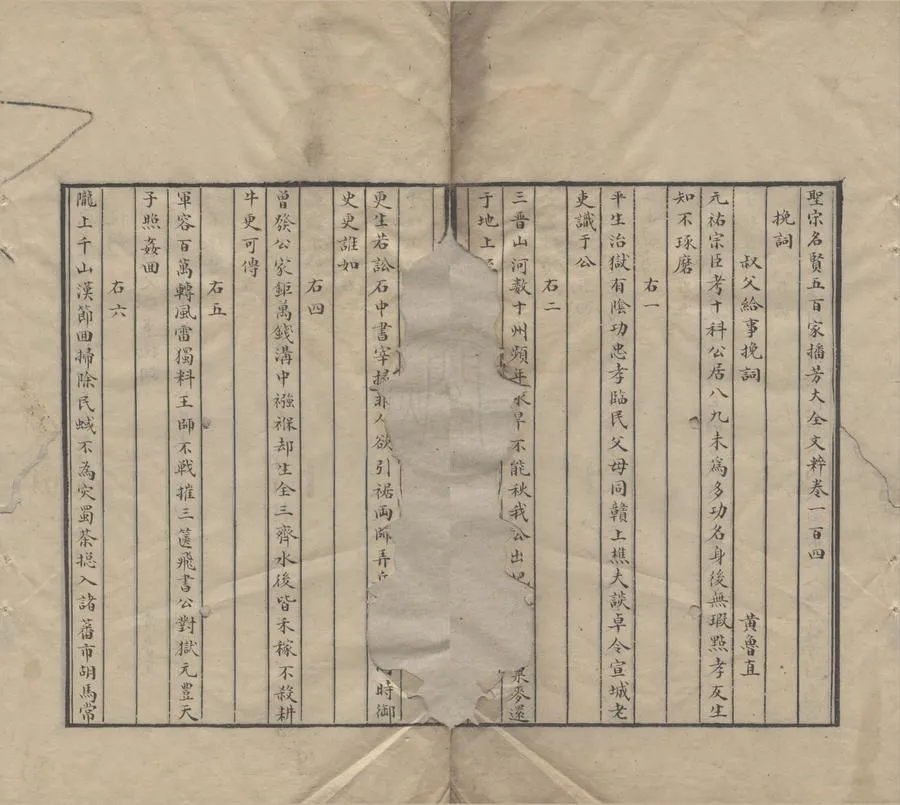 聖宗名賢五百家播芳大全文粹卷一百四
挽詞
叔父給事挽詞 黃魯直
元祐宗臣考十科公居八九未爲多功名身後無瑕點孝友生
知不琢磨
右一
平生治獄有陰功忠孝臨民父母同贛上樵夫談卓令宣城老
吏識于公
右二
三晉山河數十州頻年水旱不能秋我公出 粟麥還
于地上
更生若訟石中書宰掾非人欲引裾兩 弄 時御
史更誰如
右四
曽發公家鉅萬錢溝中襁褓却生全三齊水後皆禾稼不殺耕
牛更可傳
右五
軍容百萬轉風雷獨料王師不戰摧三篋飛書公對獄元豊天
子照姦回
右六
隴上千山漢節回掃除民蜮不為灾蜀茶揔入諸蕃市胡馬常